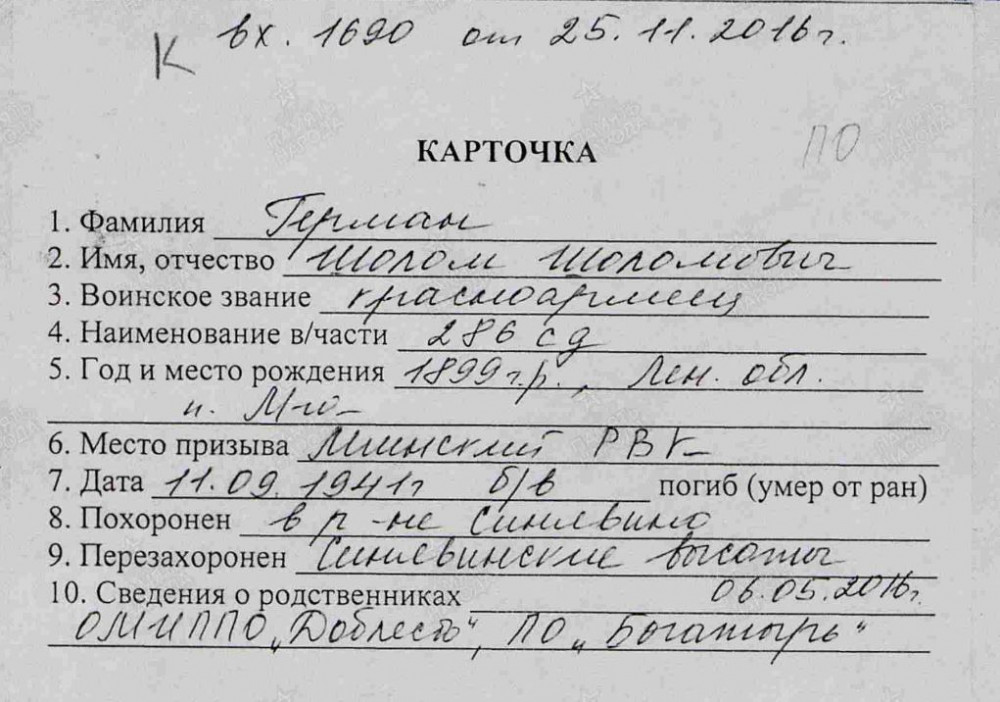 К вх. 1690 от 25.11.2016 г.
ПО
КАРТОЧКА
1. Фамилия Герман
2. Имя, отчество Шолом Шоломович
3. Воинское звание красноармеец
4. Наименование в/части 286 сд
5. Год и место рождения 1899 г.р., Лен. обл.
п. Мга
6. Место призыва Мгинский РВК
7. Дата 11.09.1941г б/в погиб (умер от ран)
8. Похоронен в р-не Синявино
9. Перезахоронен Синявинские высоты
10. Сведения о родственниках 06.05.2016г.
ОМИППО „Доблесть“, ПО „Богатырь“